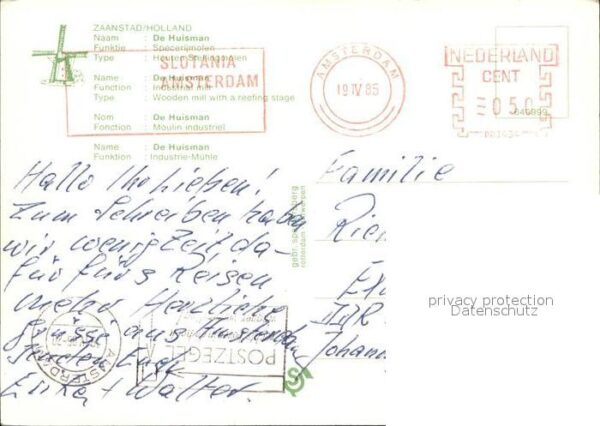 ZAANSTAD/HOLLAND
Naam : De Huisman
Funktie : Specerijmolen
Type : Houten Stellingmolen
Name : De Huisman
Function : Industrial mill
Type : Wooden mill with a reefing stage
Nom : De Huisman
Fonction : Moulin industriel
Name : De Huisman
Funktion : Industrie-Mühle
SLOTANIA
AMSTERDAM
AMSTERDAM
19 IV 85
NEDERLAND
CENT
050
Hallo Ihr Lieben!
Zum Schreiben haben
wir wenig Zeit, da-
für fürs Reisen
mehr Herzliche
Grüsse aus Amsterdam
senden Euch
Erika + Walter.
gebr. spanjersberg
rotterdam antwerpen
Familie
DDR
Johann
privacy protection
Datenschutz
POSTZEGEL
AMSTERDAM